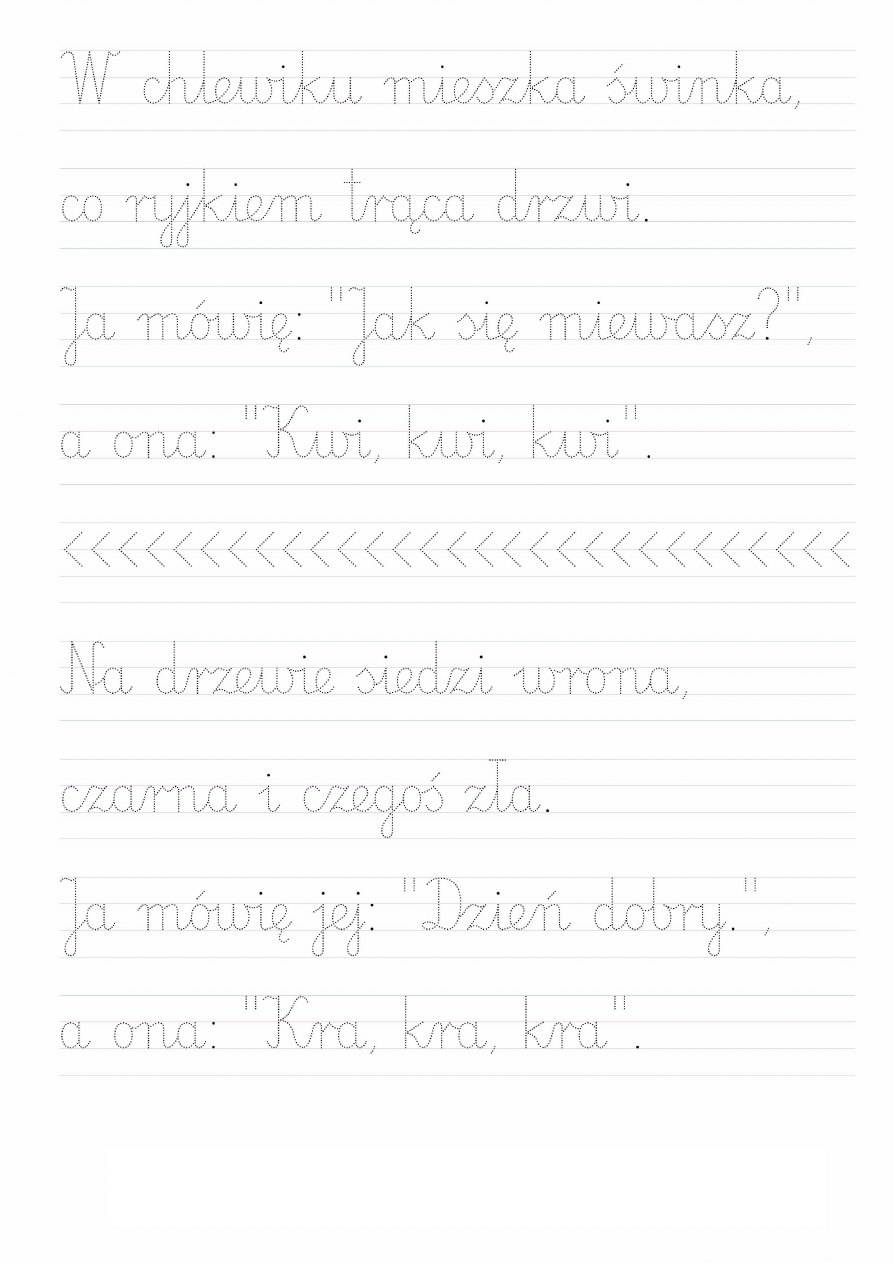 W chlewiku mieszka świnka,
co ryjkiem trąca drzwi.
Ja mówię: "Jak się miewasz?",
a ona: "Kwi, kwi, kwi".
<<<<<<<<<<<<<<<<<<<<<<<<<<<<<
Na drzewie siedzi wrona,
czarna i czegoś zła.
Ja mówię jej: "Dzień dobry.",
a ona: "Kra, kra, kra".